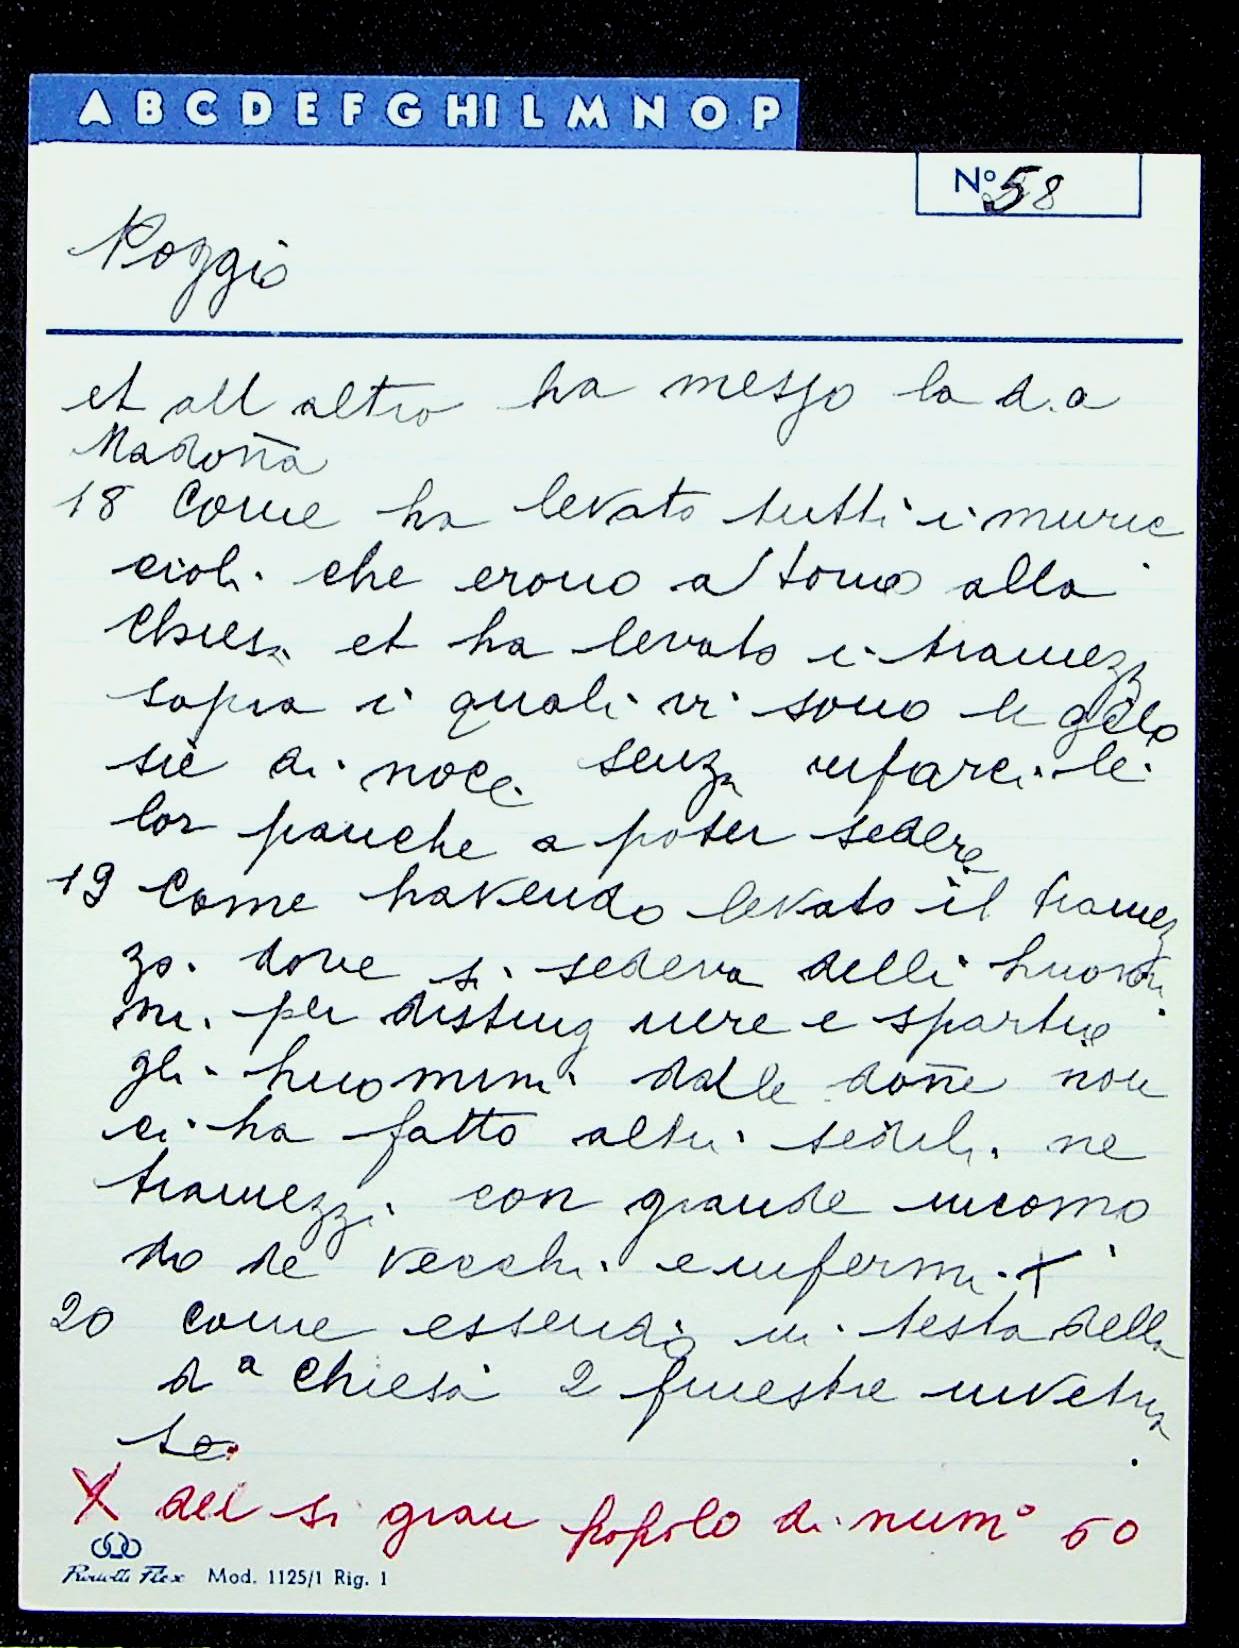 A B C D E F G H I L M N O P
N° 58
Poggio
et all altro ha messo la d.a
Madoña
18 Come ha levato tutti i muric
cioli che erono a torno alla
Chiesa et ha levato i tramezz
sopra i quali vi sono le gelo
sie di noce senza rifarci le
lor panche a poter sedere
19 Come havendo levato il tramez
zo dove si sedeva delli huomi
ni per disting uere e spartire
gli huomini dalle doñe non
ci ha fatto altri sedili ne
tramezzi con grande incomo
do de vecchi e infermi X
20 come essendo in testa della
dª Chiesa 2 finestre invetria
te
X del si gran popolo di num° 60
Mod. 1125/1 Rig. 1